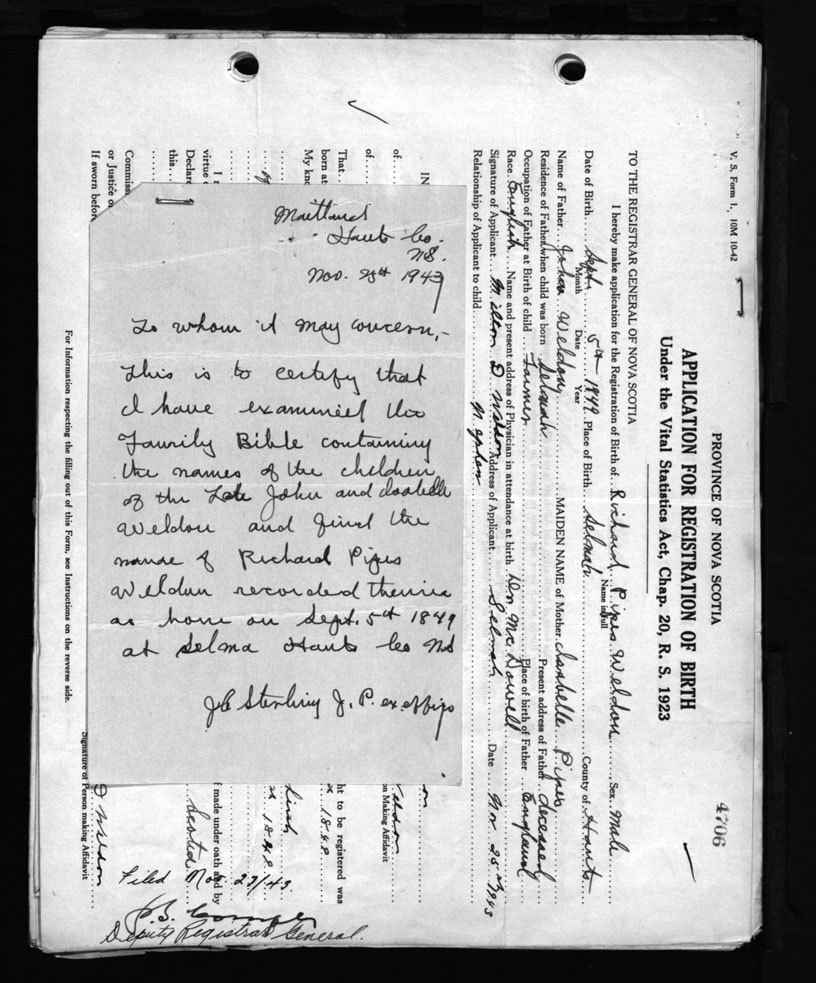 Maitland
Hants Co.
N.S.
Nov. 25th 1943
To whom it May concern,-
This is to certify that
I have examined the
Family Bible containing
the names of the children
of the Late John and Isabelle
Weldon and find the
name of Richard Pipes
Weldon recorded therein
as born on Sept. 5th 1849
at Selma Hants Co NS
Sterling J. P. ex officio
V. S. Form 1, 10M 10-42
4706
PROVINCE OF NOVA SCOTIA
APPLICATION FOR REGISTRATION OF BIRTH
Under the Vital Statistics Act, Chap. 20, R. S. 1923
TO THE REGISTRAR GENERAL OF NOVA SCOTIA
I hereby make application for the Registration of Birth of Richard Pipes Weldon Sex male
Name in full
Date of Birth Sept. 5th 1849 Place of Birth Selmah County of Hants
Month Date Year
Name of Father John Weldon MAIDEN NAME of Mother Isabelle Pipes
Residence of Father when child was born Selmah Present address of Father deceased
Occupation of Father at Birth of child Farmer Place of birth of Father England
Race English Name and present address of Physician in attendance at birth Dr. McDowell
Signature of Applicant Milton D Weldon Address of Applicant Selmah Date Nov 25 1943
Relationship of Applicant to child Nephew
IN
of
of
That
born at
My kno
I
virtue
Declar
this
Commis
or Justice of
If sworn befor
ht to be registered was
n Making Affidavit
f made under oath and by
Scotia
Filed Nov. 27/43.
Deputy Registrar General.
Signature of Person making Affidavit
For Information respecting the filling out of this Form, see Instructions on the reverse side.